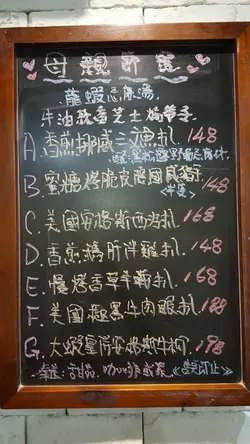 母親節餐
龍蝦忌廉湯
牛油蒜香芝士焗帶子
A. 香煎挪威三文魚扒 148
B. 蜜糖烤脆皮德國咸豬手 148
<半隻>
C. 美國安格斯西冷扒 168
D. 香煎鴨肝伴雞扒 148
E. 慢烤香草羊鞍扒 168
F. 美國極黑牛肉眼扒 188
G. 大蝦皇併安格斯牛柳 198
奉送: 甜品, 咖啡或茶 <售完即止>